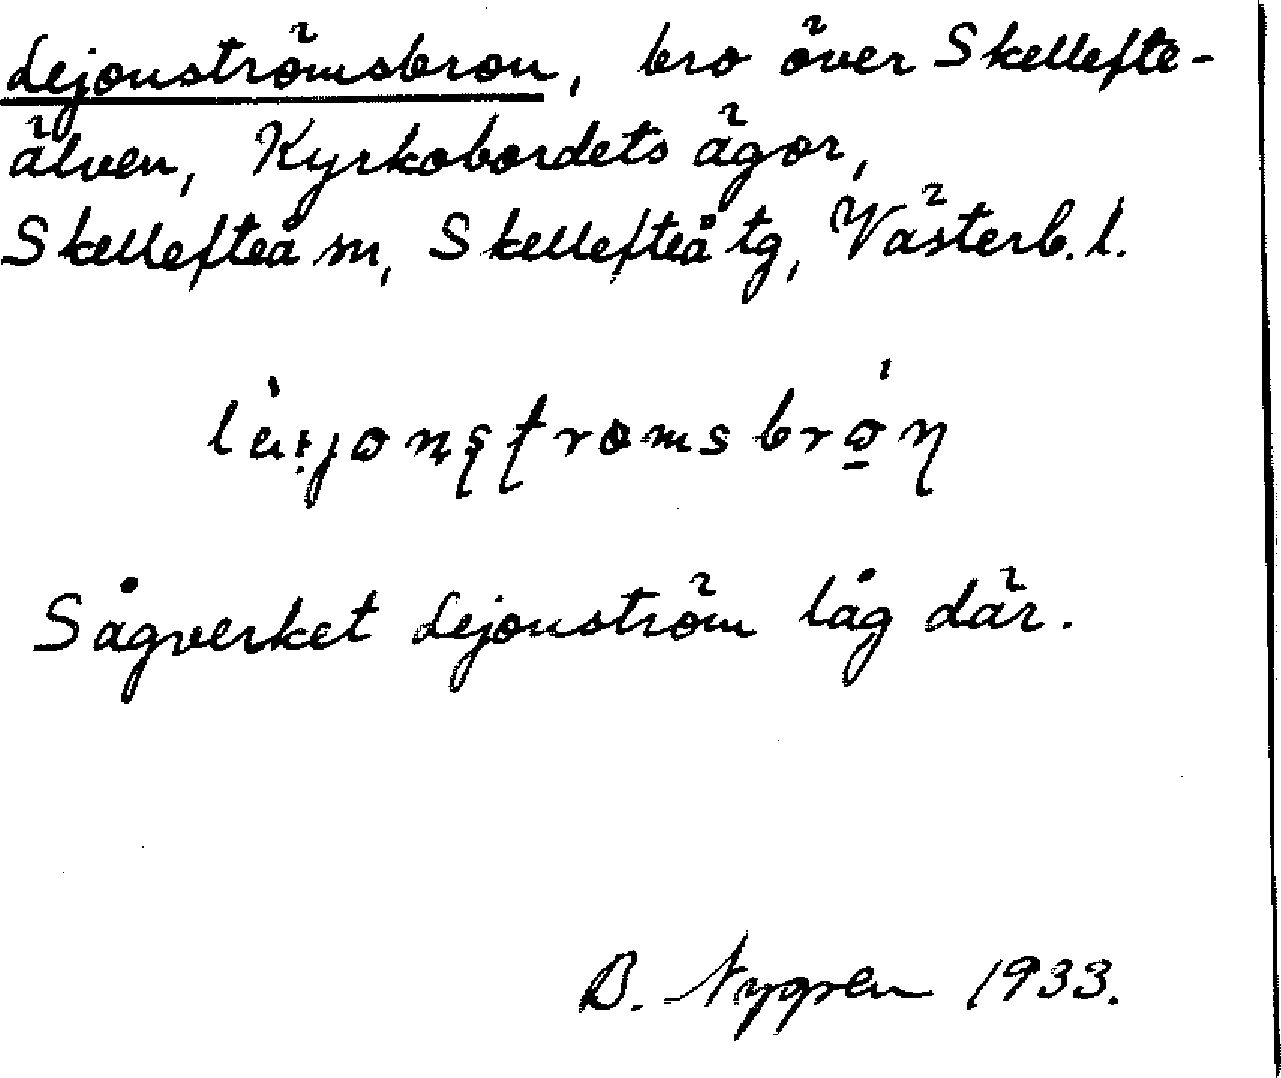 Lejonströmsbron, bro över Skellefte-
älven, Kyrkobordets ägor,
Skellefteå sn, Skellefteå tg, Västerb. l.
Sågverket Lejonström låg där.
B. Nygren 1933.